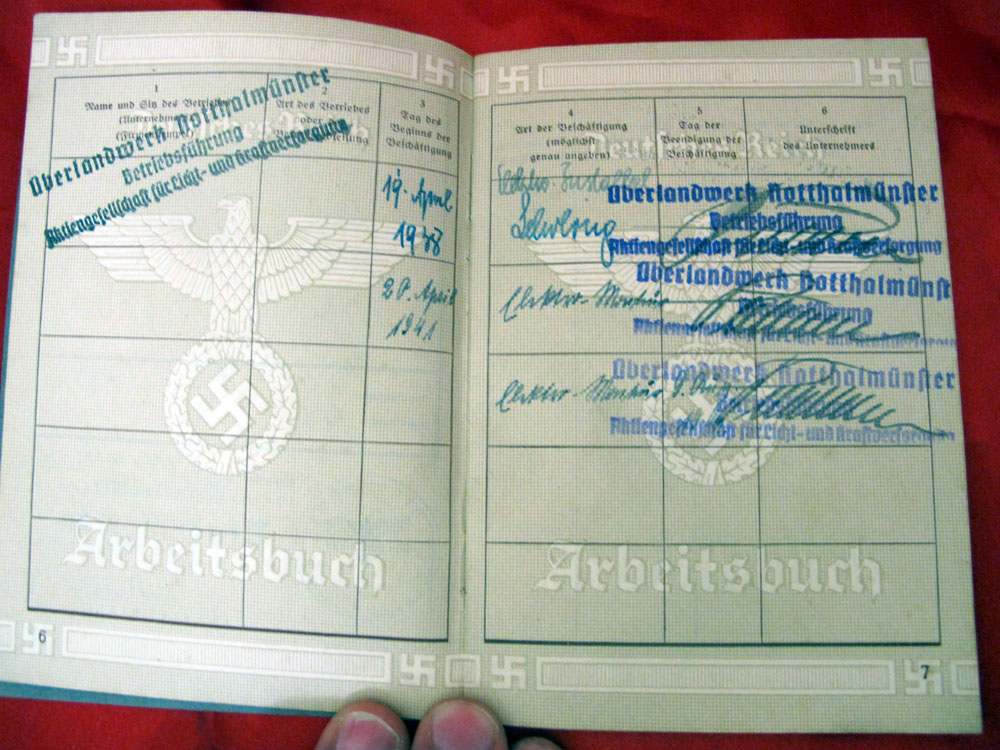 1
Name und Sitz des Betriebes
(Unternehmers)
(Firmenstempel)
2
Art des Betriebes
oder der
3
Tag des
Beginns der
Beschäftigung
Überlandwerk Rotthalmünster
Betriebsführung
Aktiengesellschaft für Licht- und Kraftversorgung
19. April
1938
20. April
1941
Arbeitsbuch
6
4
Art der Beschäftigung
(möglichst
genau angeben)
5
Tag der
Beendigung der
Beschäftigung
6
Unterschrift
des Unternehmers
Deutsches Reich
Elektro-Install
Lehrling
Überlandwerk Rotthalmünster
Betriebsführung
Aktiengesellschaft für Licht- und Kraftversorgung
Elektro-Monteur
Überlandwerk Rotthalmünst
Betriebsführung
Aktiengesellschaft für Licht- und Kraftversorgung
Elektro-Monteur
Überlandwerk Rotthalmünster
Aktiengesellschaft für Licht- und Kraftversorgung
Arbeitsbuch
7